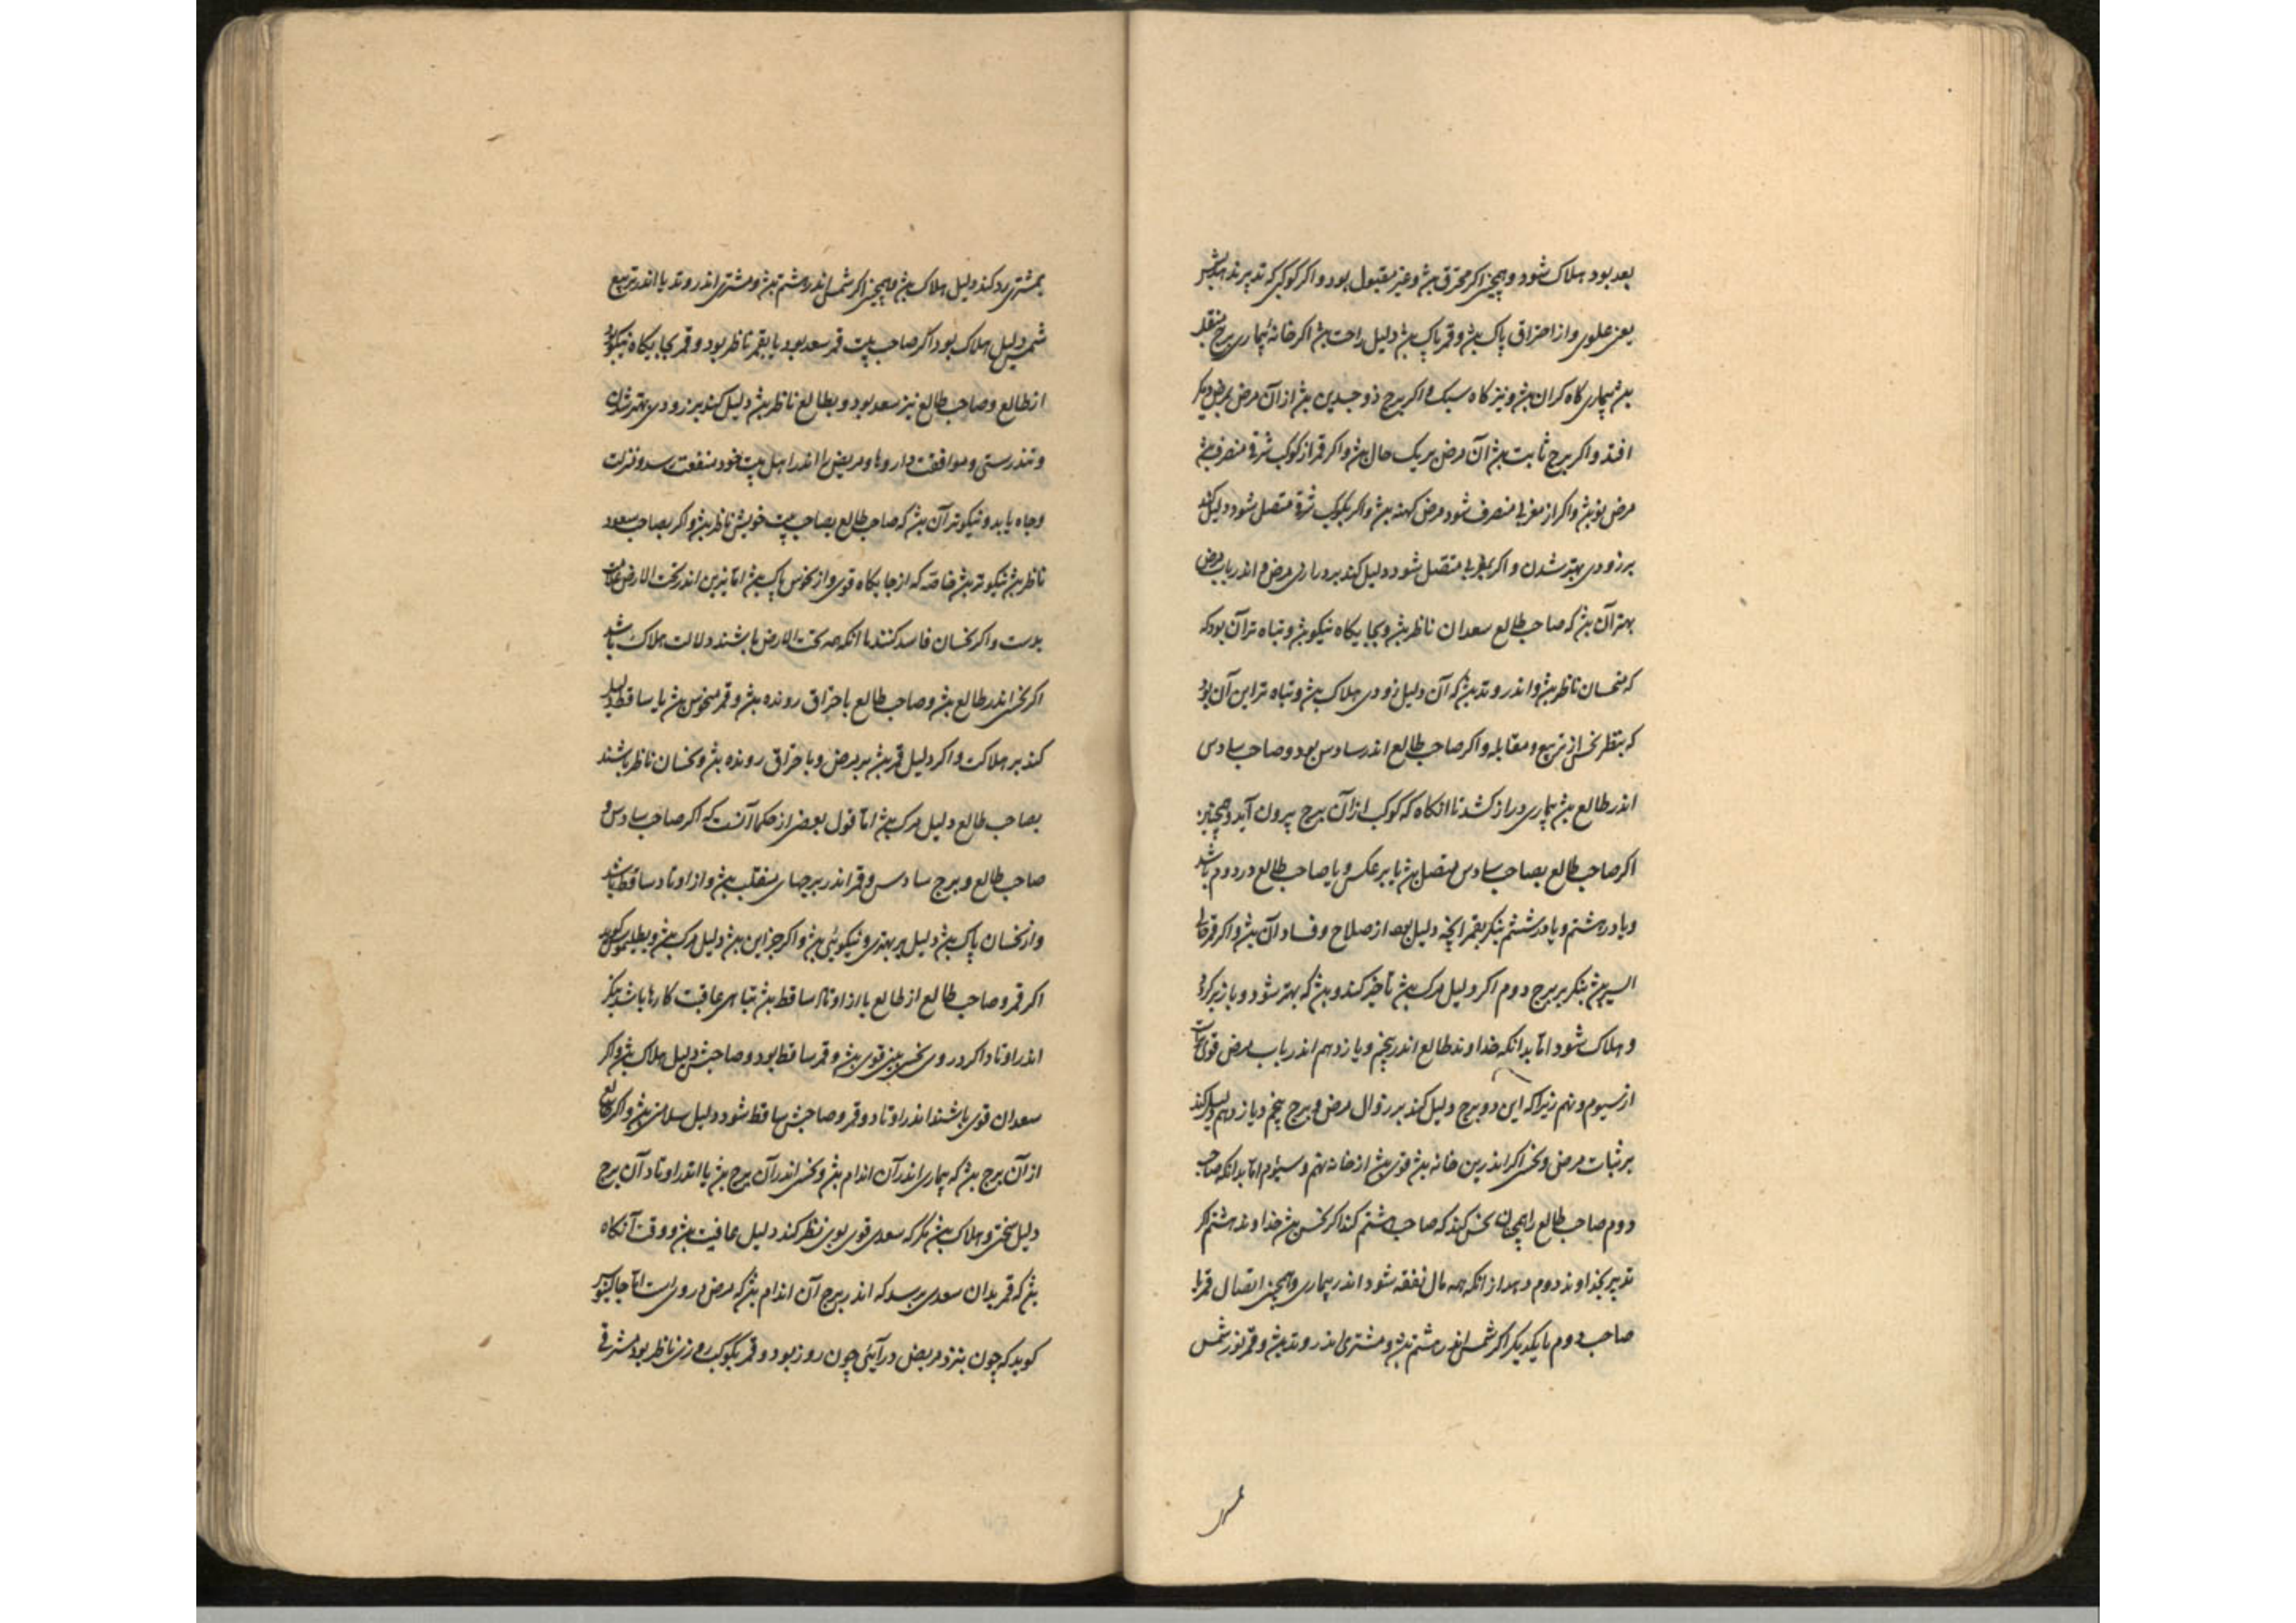 بعد بود هلاک شود و همچنین اکر محترق بشد و غیر مقبول بود و اکر کوکبی که تدبیر بدو
یعنی علوی و از احتراق پاک بشد و قمر پاک بشد دلیل راحت بشد اکر خانه بیماری برج منقلب
بشد بیماری کاه کران بشد و نیز کاه سبک و اکر برج ذو جسدین بشد از آن مرض بمرض دیکر
افتد و اکر برج ثابت بشد آن مرض بر یک حال بشد و اکر قمر از کوکب شرقی منصرف بشد
مرض نو بشد و اکر از مغربی منصرف شود مرض کهنه بشد و اکر بکوکب شرقی متصل شود دلیل کند
بر زودی بهتر شدن و اکر بغربی متصل شود دلیل کند بر درازی مرض و اندر باب مرض
بهتر آن بشد که صاحب طالع سعدان ناظر بشد و بجایکاه نیکو بشد و تباه تر آن بود که
که نحسان ناظر بشد و اندر وتد بشد که آن دلیل زودی هلاک بشد و تباه تر این آن بود
که بنظر نحس از تربیع و مقابله و اکر صاحب طالع اندر سادس بود و صاحب سادس
اندر طالع بشد بیماری دراز کشد تا انکاه که کوکب از آن برج بیرون آید و همچنین
اکر صاحب طالع بصاحب سادس متصل بشد یا بر عکس و یا صاحب طالع در دوم باشد
و یا در هشتم و یا در ششم بنکر بقمر انچه دلیل بود از صلاح و فساد آن بشد و اکر قمر خالی
السیر بشد بنکر ببرج دوم اکر دلیل مرک بشد تأخیر کند و بشد که بهتر شود و باز بر کردد
و هلاک شود اما بدانکه خداوند طالع اندر پنجم و یازدهم اندر باب مرض قوی تر است
از سیوم و نهم زیرا که این دو برج دلیل کند بر زوال مرض و برج پنجم و یازدهم دلیل کند
بر ثبات مرض و نحس اکر اندرین خانه بشد قوی بشد از خانه نهم و سیوم اما بدانکه صاحب
دوم صاحب طالع را همچنان نحس کند که صاحب هشتم کند اکر نحس بشد خداوند هشتم اکر
تدبیر بخداوند دوم دهد از انکه همه مال نفقه شود اندر بیماری و همچنین اتصال قمر با
صاحب دوم با یکدیکر اکر شمس اندر هشتم بشد و مشتری اندر وتد بشد و قمر نور شمس
بمشتری رد کند دلیل هلاک بشد و همچنین اکر شمس اندر هشتم بشد و مشتری اندر وتد یا اندر تربیع
شمس دلیل هلاک بود اکر صاحب بیت قمر سعد بود یا بقمر ناظر بود و قمر بجایکاه نیکو بود
از طالع و صاحب طالع نیز سعد بود و بطالع ناظر بشد دلیل کند بر زودی بهتر شدن
و تندرستی و موافقت داروها و مریض را اندر اهل بیت خود منفعت رسد و منزلت
و جاه یابد و نیکوتر آن بشد که صاحب طالع بصاحب بیت خویش ناظر بشد و اکر بصاحب سعود
ناظر بشد نیکوتر بشد خاصه که از جایکاه قوی و از نحوس پاک بشد اما نیرین اندر تحت الارض علامت
بدست و اکر نحسان فاسد کنند با انکه همه تحت الارض باشند دلالت هلاک باشد
اکر نحس اندر طالع بشد و صاحب طالع باحتراق رونده بشد و قمر منحوس بشد یا ساقط دلیل
کند بر هلاکت و اکر دلیل قمر بشد بر مرض و باحتراق رونده بشد و نحسان ناظر باشند
بصاحب طالع دلیل مرک بشد اما قول بعضی از حکما آنست که اکر صاحب سادس و
صاحب طالع و برج سادس و قمر اندر برجهای منقلب بشد و از اوتاد ساقط باشد
و از نحسان پاک بشد دلیل بر بهتری و نیکوئی بشد و اکر جز این بشد دلیل مرک بشد و بطلیموس کوید
اکر قمر و صاحب طالع از طالع یا از اوتاد ساقط بشد تباهی عاقبت کارها باشد بنکر
اندر اوتاد اکر در وی نحس بشد قوی بشد و قمر ساقط بود و صاحبش دلیل هلاک بشد و اکر
سعدان قوی باشند اندر اوتاد و قمر و صاحبش ساقط شود دلیل سلامتی بشد و اکر طالع
از آن برج بشد که بیماری اندر آن اندام بشد و نحس اندر آن برج بشد یا اندر اوتاد آن برج
دلیل سختی و هلاک بشد مکر که سعدی قوی بوی نظر کند دلیل عافیت بشد و وقت آنکاه
بشد که قمر بدان سعدی برسد که اندر برج آن اندام بشد که مرض در وی است اما جالینوس
کوید که چون بنزد مریض درآئی چون روز بود و قمر بکوکب روزی ناظر بود مشرقی